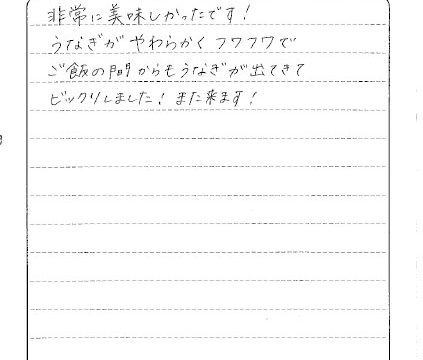 非常に美味しかったです!
うなぎが やわらかく フワフワで
ご飯の間からもうなぎが出てきて
ビックリしました! また来ます!